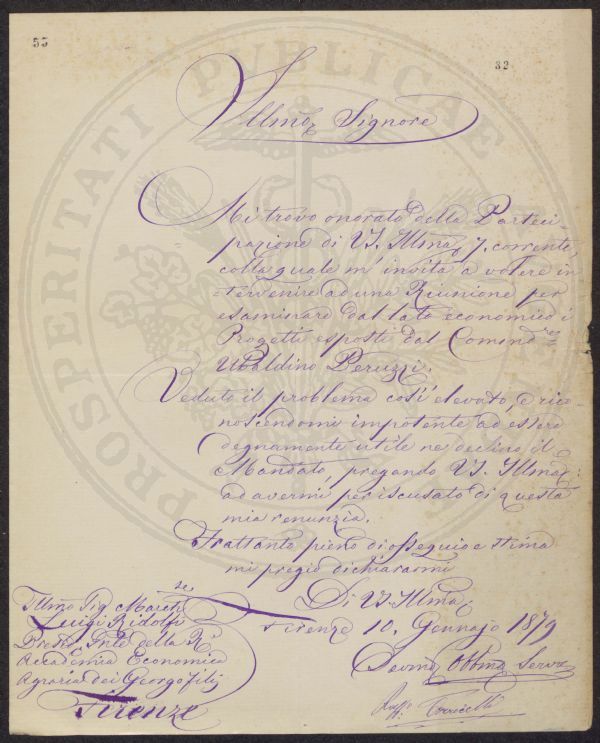 33
32
Illmo Signore
Mi trovo onorato della Parteci-
pazione di VS. Illma 7. corrente,
colla quale m'invita a volere in
=tervenire ad una Riunione per
esaminare dal lato economico i
Progetti esposti dal Comendre
Ubaldino Peruzzi.
Veduto il problema così elevato, e rico-
noscendomi impotente ad essere
degnamente utile ne declino il
Mandato, pregando VS. Illma
ad avermi per iscusato di questa
mia renunzia.
Frattanto pieno di ossequio e stima
mi pregio dichiararmi
Di VS. Illma
Firenze 10. Gennajo 1879
Devmo Obbmo Servo
Raffo Torricelli
Illmo Sig. Marchse
Luigi Ridolfi
Presidente della R.
Accademia Economica
Agraria dei Georgofili
Firenze
PROSPERITATI PUBLICAE